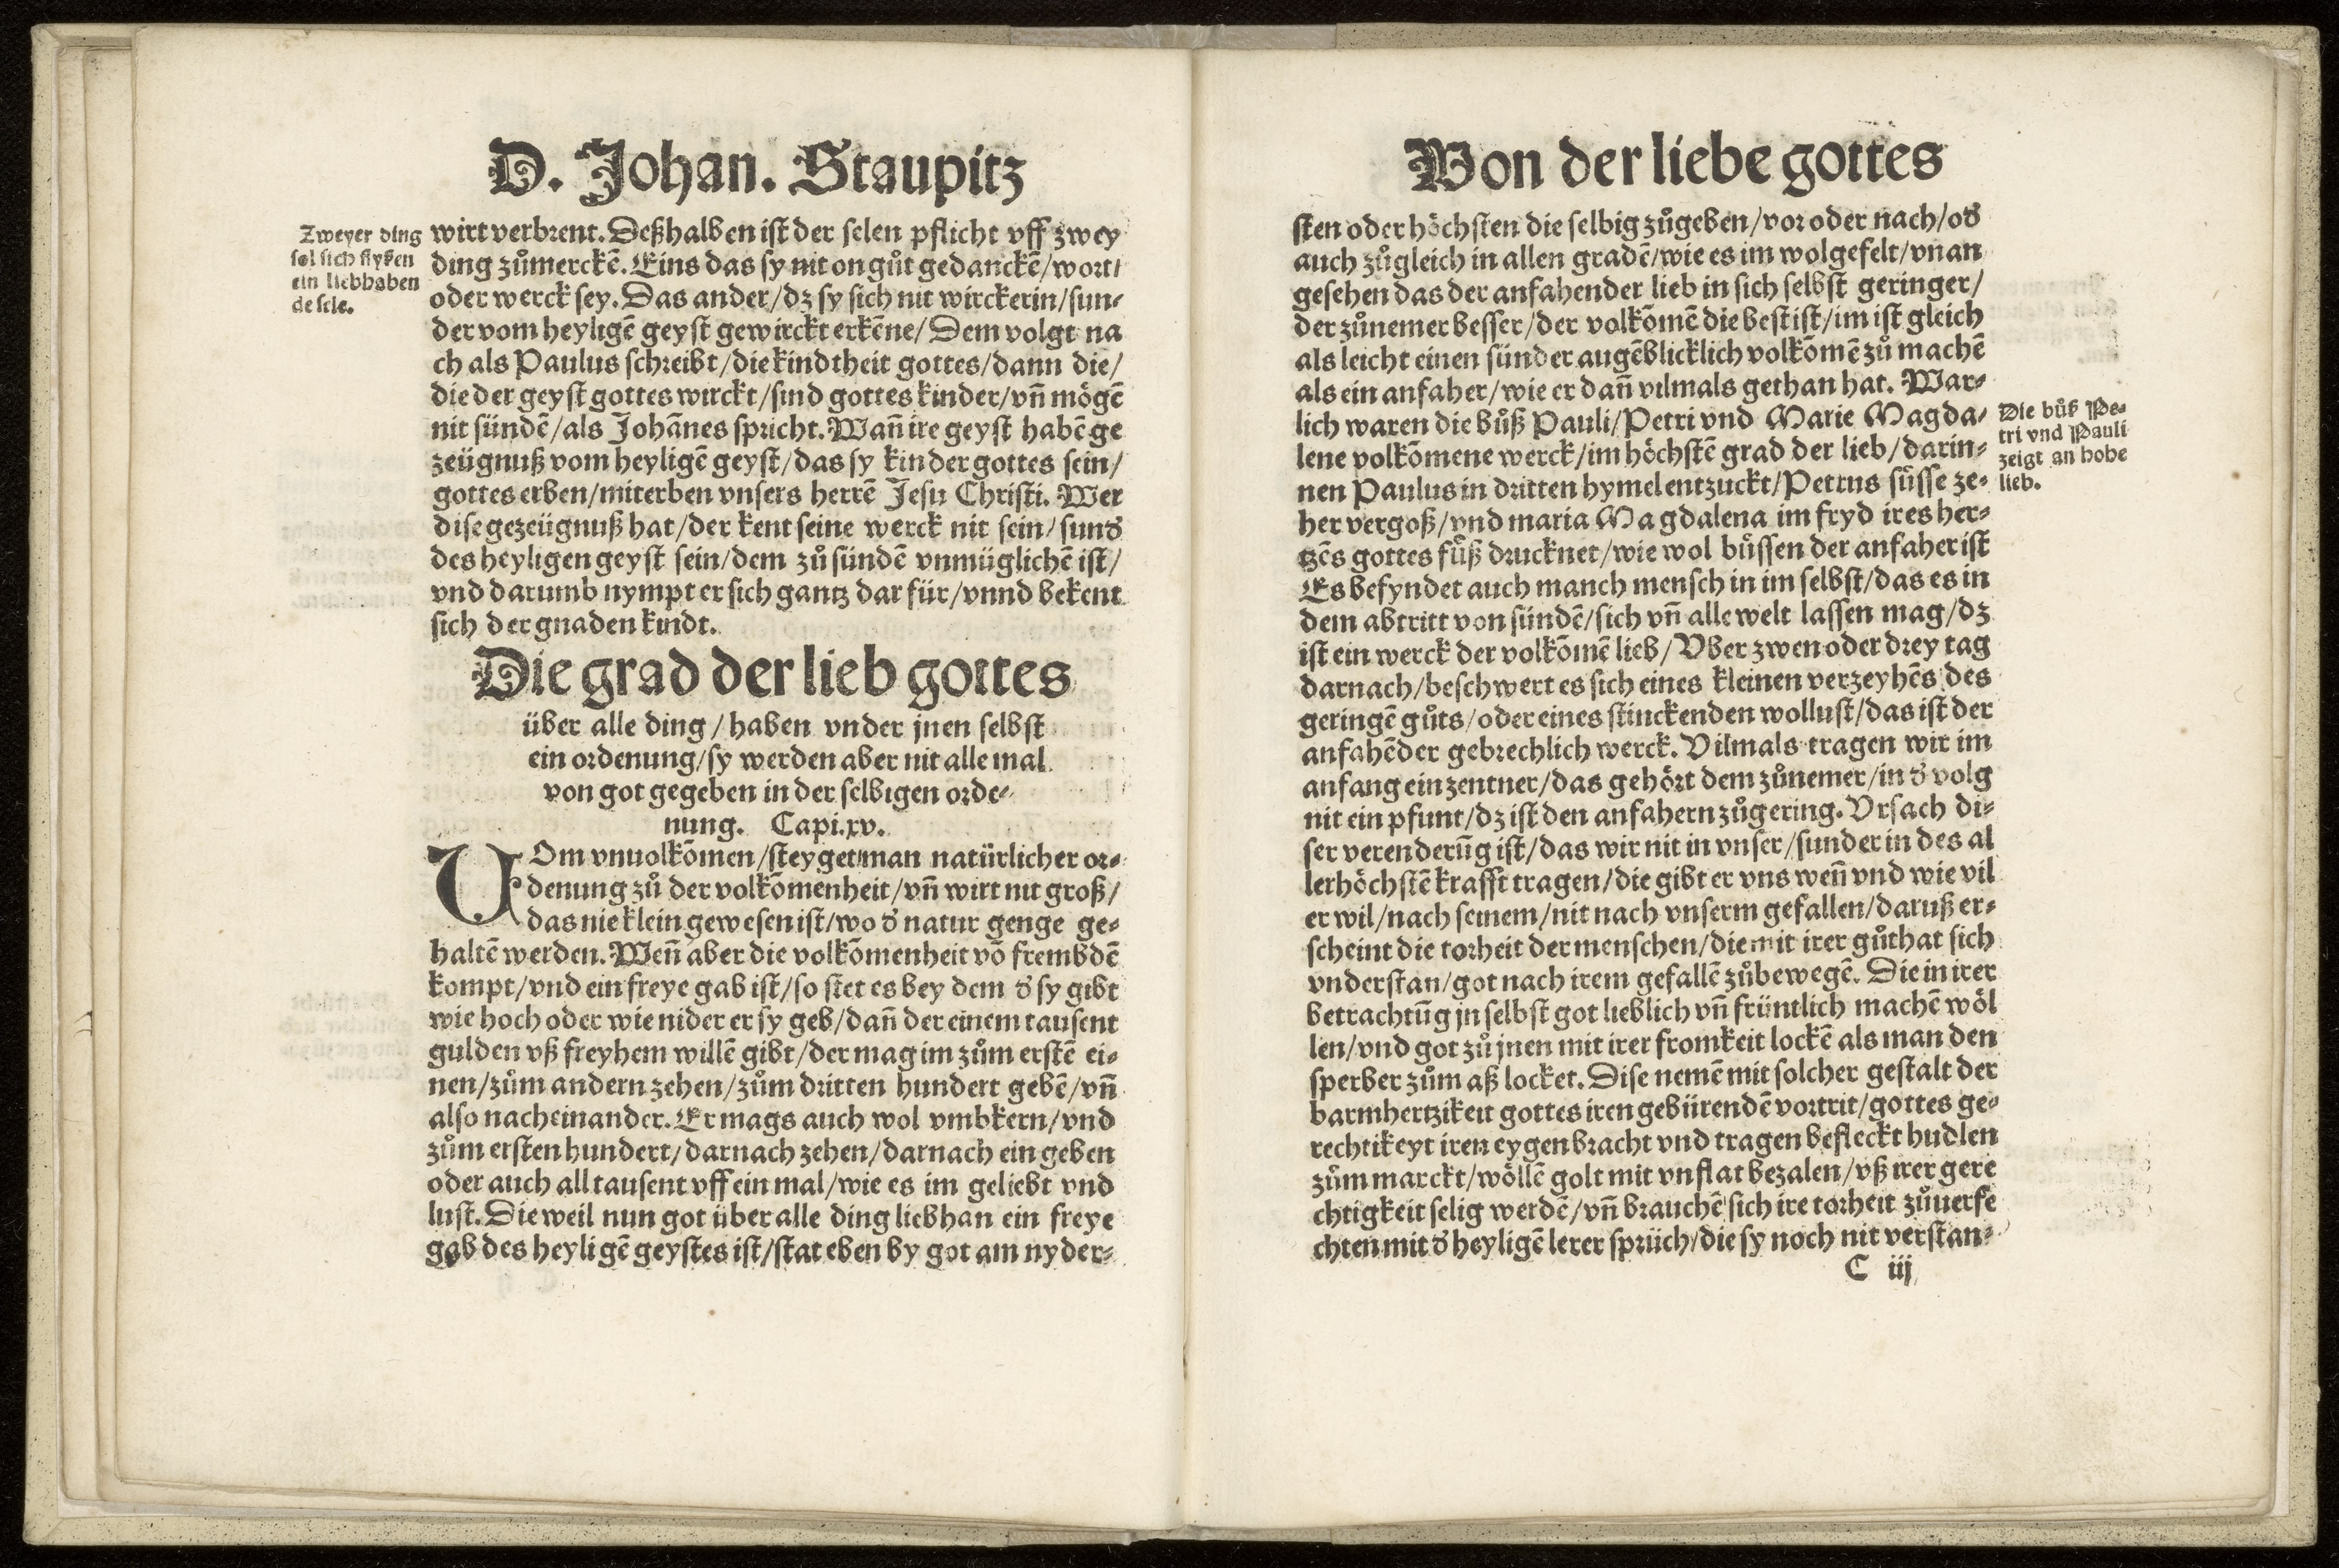 D. Johan. Staupitz
Zweyer ding
sol sich flyßen
ein liebhaben
de sele.
wirt verbrent. Deßhalben ist der selen pflicht vff zwey
ding zůmerckē. Eins das sy nit on gůt gedanckē/wort/
oder werck sey. Das ander/dz sy sich nit wirckerin/sun⸗
der vom heyligē geyst gewirckt erkēne/Dem volgt na
ch als Paulus schreibt/die kindtheit gottes/dann die/
die der geyst gottes wirckt/sind gottes kinder/vn̄ mögē
nit sündē/als Johānes spricht. Wan̄ ire geyst habē ge
zeügnuß vom heyligē geyst/das sy kinder gottes sein/
gottes erben/miterben vnsers herrē Jesu Christi. Wer
dise gezeügnuß hat/der kent seine werck nit sein/sund̛
des heyligen geyst sein/dem zů sündē vnmüglichē ist/
vnd darumb nympt er sich gantz dar für/vnnd bekent
sich der gnaden kindt.
Die grad der lieb gottes
über alle ding/haben vnder jnen selbst
ein ordenung/sy werden aber nit alle mal
von got gegeben in der selbigen orde⸗
nung. Capi.xv.
VOm vnuolkōmen/steyget man natürlicher or⸗
denung zů der volkōmenheit/vn̄ wirt nit groß/
das nie klein gewesen ist/wo d̛ natur genge ge⸗
haltē werden. Wen̄ aber die volkōmenheit vō frembdē
kompt/vnd ein freye gab ist/so stet es bey dem d̛ sy gibt
wie hoch oder wie nider er sy geb/dan̄ der einem tausent
gulden vß freyhem willē gibt/der mag im zům erstē ei⸗
nen/zům andern zehen/zům dritten hundert gebē/vn̄
also nacheinander. Er mags auch wol vmbkern/vnd
zům ersten hundert/darnach zehen/darnach ein geben
oder auch all tausent vff ein mal/wie es im geliebt vnd
lust. Die weil nun got über alle ding liebhan ein freye
gab des heyligē geystes ist/stat eben by got am nyder⸗
Von der liebe gottes
sten oder höchsten die selbig zůgeben/vor oder nach/od̛
auch zůgleich in allen gradē/wie es im wolgefelt/vnan
gesehen das der anfahender lieb in sich selbst geringer/
der zůnemer besser/der volkōmē die best ist/im ist gleich
als leicht einen sünder augēblicklich volkōmē zů machē
als ein anfaher/wie er dan̄ vilmals gethan hat. War⸗
lich waren die bůß Pauli/Petri vnd Marie Magda⸗
lene volkōmene werck/im höchstē grad der lieb/darin⸗
nen Paulus in dritten hymel entzuckt/Petrus süsse ze⸗
her vergoß/vnd maria Magdalena im fryd ires her⸗
tzēs gottes fůß drucknet/wie wol büssen der anfaher ist
Es befyndet auch manch mensch in im selbst/das es in
dem abtritt von sündē/sich vn̄ alle welt lassen mag/dz
ist ein werck der volkōmē lieb/Vber zwen oder drey tag
darnach/beschwert es sich eines kleinen verzeyhēs des
geringē gůts/oder eines stinckenden wollust/das ist der
anfahēder gebrechlich werck. Vilmals tragen wir im
anfang ein zentner/das gehört dem zůnemer/in d̛ volg
nit ein pfunt/dz ist den anfahern zůgering. Vrsach di⸗
ser verenderūg ist/das wir nit in vnser/sunder in des al
lerhöchstē krafft tragen/die gibt er vns wen̄ vnd wie vil
er wil/nach seinem/nit nach vnserm gefallen/daruß er⸗
scheint die torheit der menschen/die mit irer gůthat sich
vnderstan/got nach irem gefallē zůbewegē. Die in irer
betrachtūg jn selbst got lieblich vn̄ früntlich machē wöl
len/vnd got zů jnen mit irer fromkeit lockē als man den
sperber zům aß locket. Dise nemē mit solcher gestalt der
barmhertzikeit gottes iren gebürendē vortrit/gottes ge⸗
rechtikeyt iren eygen bracht vnd tragen befleckt hudlen
zům marckt/wöllē golt mit vnflat bezalen/vß irer gere
chtigkeit selig werdē/vn̄ brauchē sich ire torheit zůuerfe
chten mit d̛ heyligē lerer sprüch/die sy noch nit verstan⸗
Die bůß Pe⸗
tri vnd Pauli
zeigt an hohe
lieb.
C iij